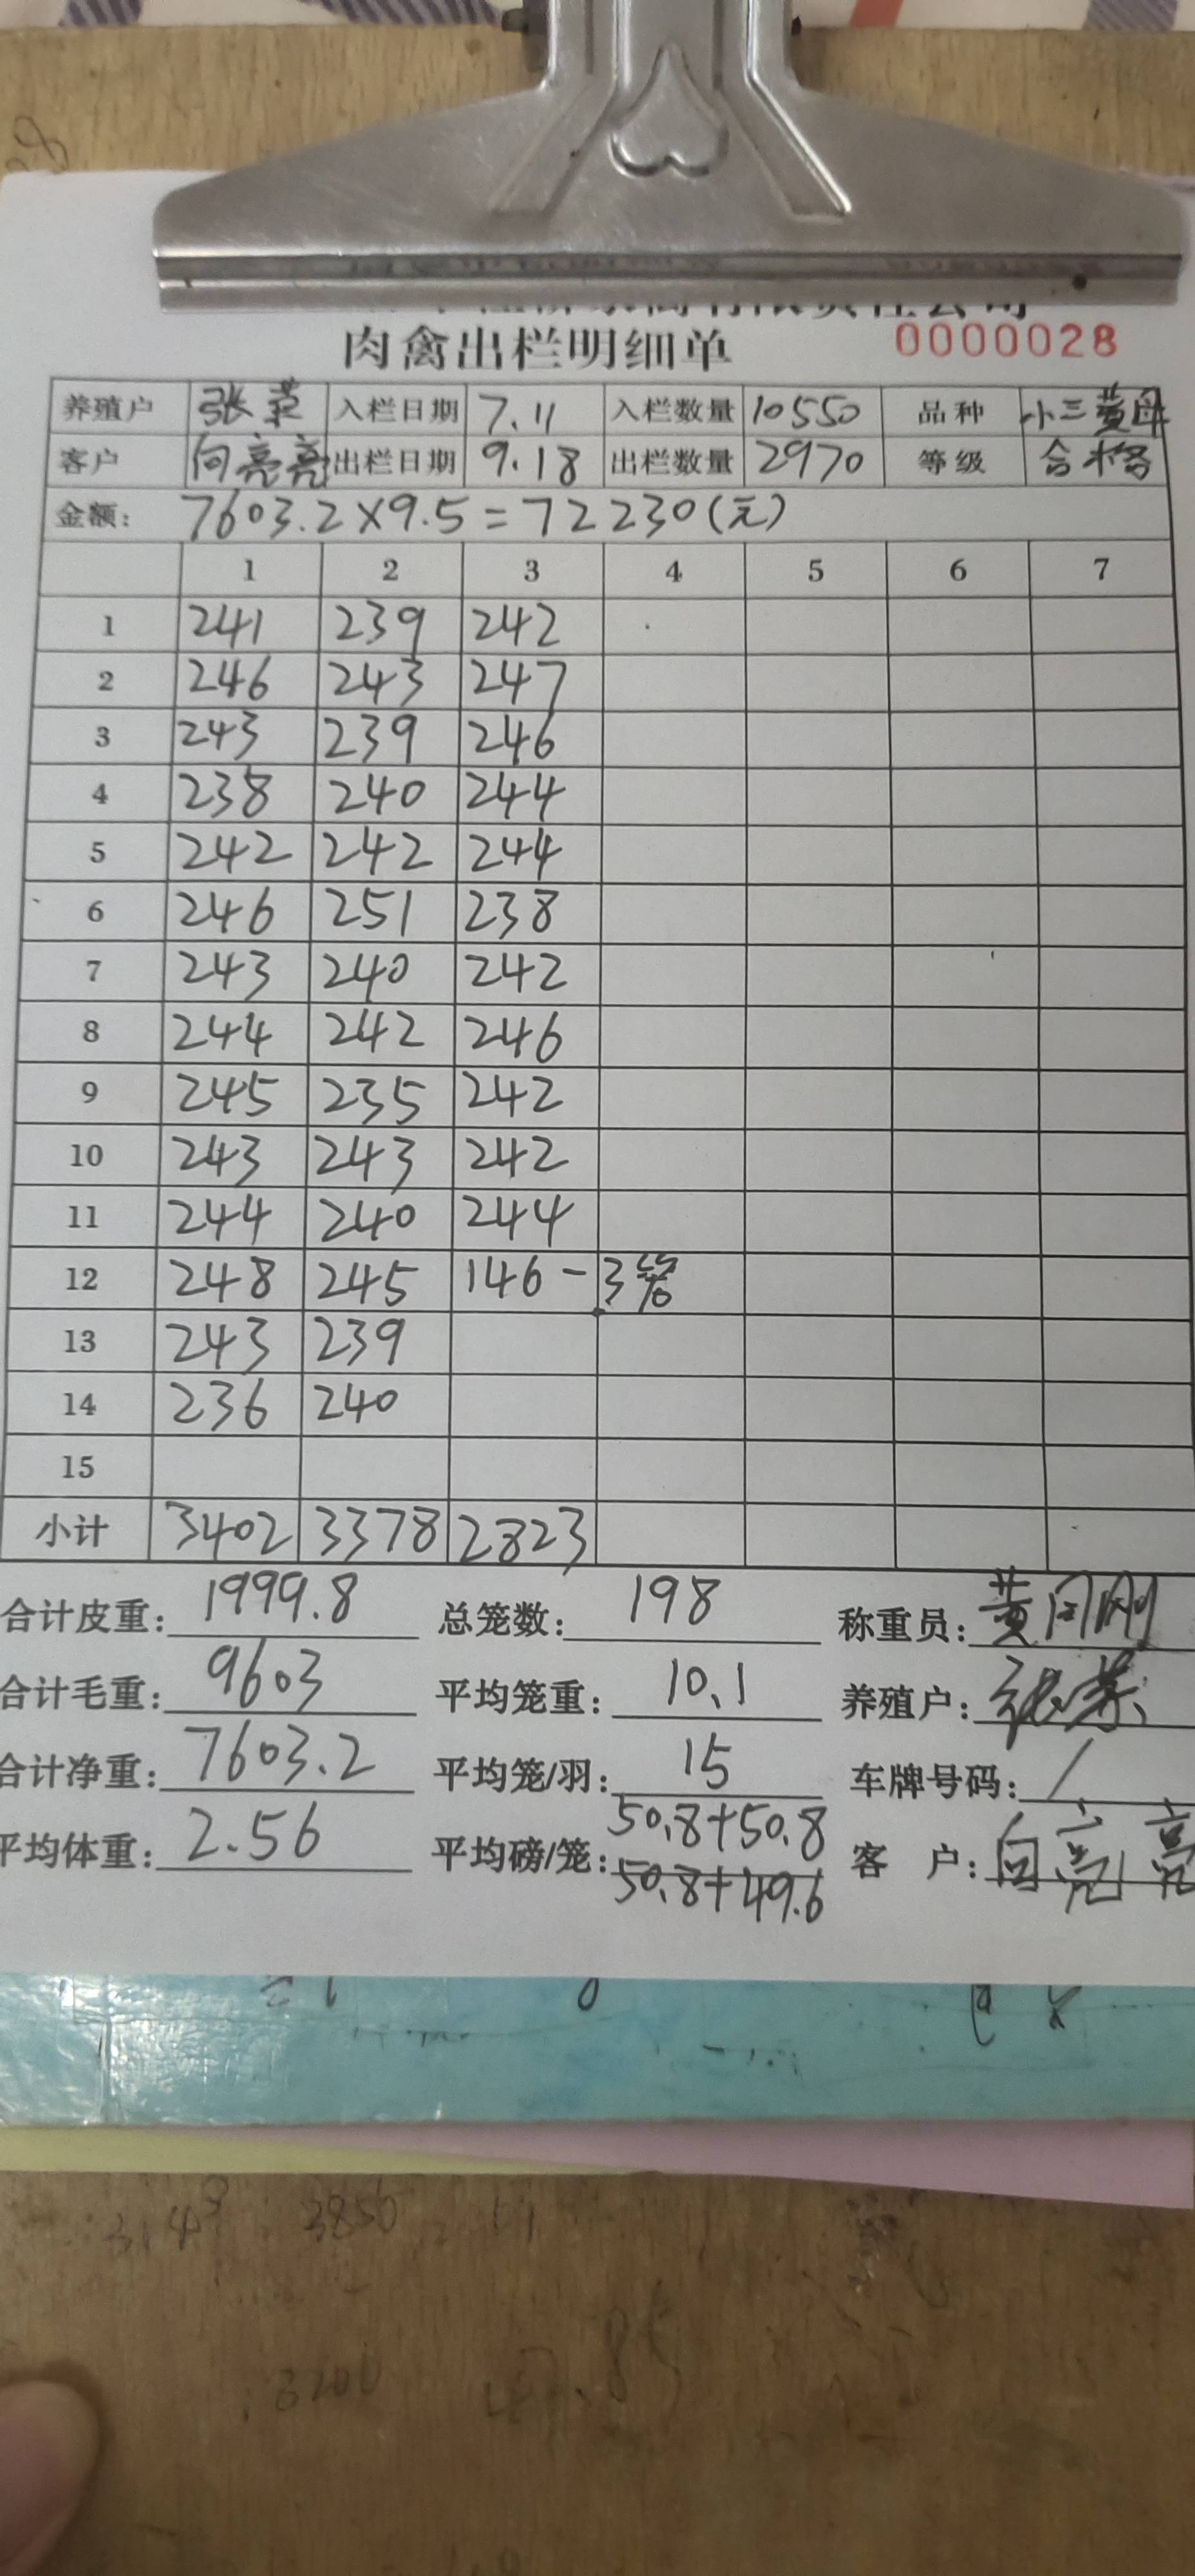 肉禽出栏明细单 0000028
养殖户 张荣 入栏日期 7.11 入栏数量 10550 品种 小三黄母
客户 向亮亮 出栏日期 9.18 出栏数量 2970 等级 合格
金额: 7603.2×9.5=72230(元)
1 2 3 4 5 6 7
1 241 239 242
2 246 243 247
3 243 239 246
4 238 240 244
5 242 242 244
6 246 251 238
7 243 240 242
8 244 242 246
9 245 235 242
10 243 243 242
11 244 240 244
12 248 245 146-3笼
13 243 239
14 236 240
15
小计 3402 3378 2823
合计皮重: 1999.8 总笼数: 198 称重员: 黄同刚
合计毛重: 9603 平均笼重: 10.1 养殖户: 张荣
合计净重: 7603.2 平均笼/羽: 15 车牌号码: /
平均体重: 2.56 平均磅/笼: 50.8+50.8 客户: 向亮亮
50.8+49.6